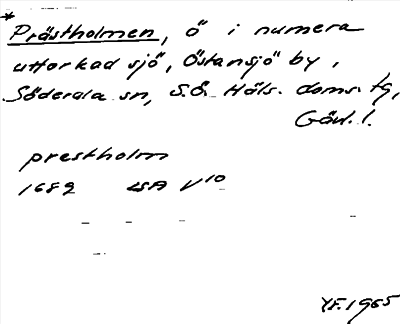 * Prästholmen, ö i numera
uttorkad sjö, Östansjö by,
Söderala sn, S.Ö. Häls. doms. tg,
Gävl. l.
prestholm
1682 LSA V10
YF. 1965